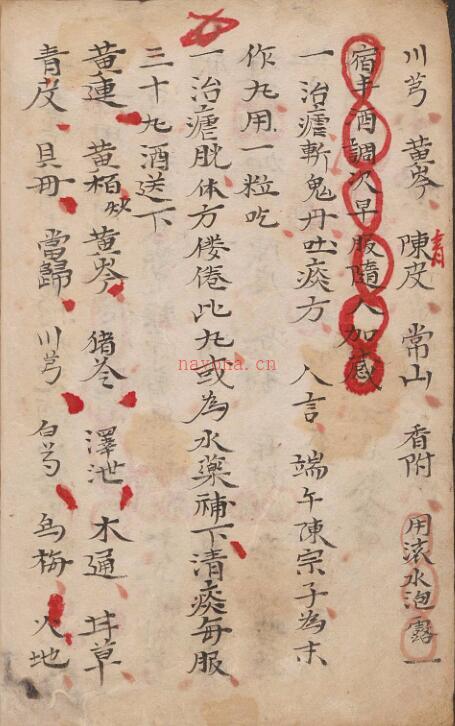 川芎 黄岑 陳皮 青 常山 香附 用滚水泡露一
宿半酒調次早服隨人加感
一 治瘧斬鬼丹吐痰方 人言 端午陳宗子為末
作丸用一粒吃
一 治瘧脱体方倭倦此丸或為水藥補下清痰每服
三十丸酒送下
黄連 黄柏炒 黄岑 猪苓 澤泄 木通 甘草
青皮 貝母 當歸 川芎 白芍 烏梅 人地
nayona.cn